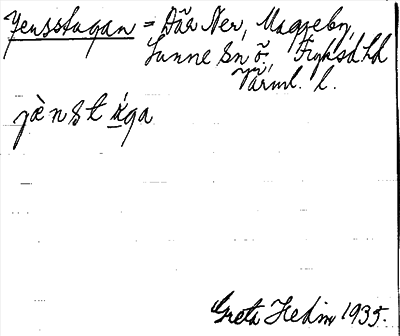 Jensstugan = Där Ner, Maggeby,
Sunne sn ö. Fryksd. hd
Värml. l.
jènstùga
Greta Hedin 1935.